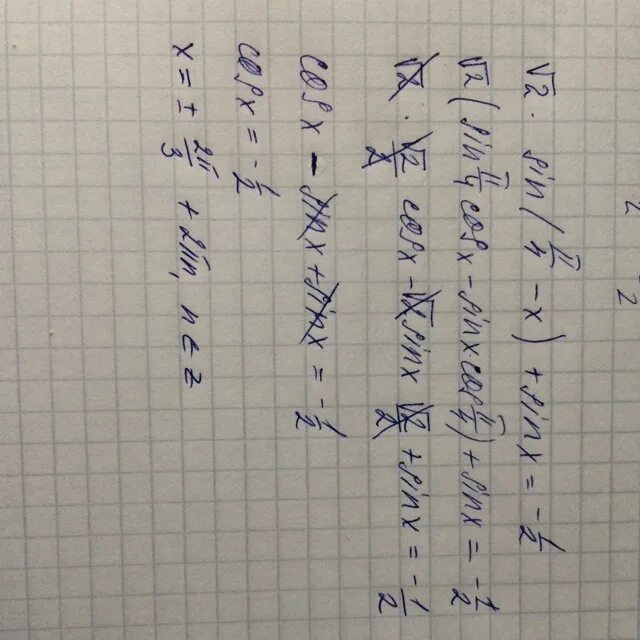 √2 · sin(π/4 − x) + sin x = −1/2
√2(sin π/4 cos x − sin x · cos π/4) + sin x = −1/2
√2 · √2/2 cos x − √2 sin x √2/2 + sin x = −1/2
cos x − sin x + sin x = −1/2
cos x = −1/2
x = ± 2π/3 + 2πn, n ∈ z